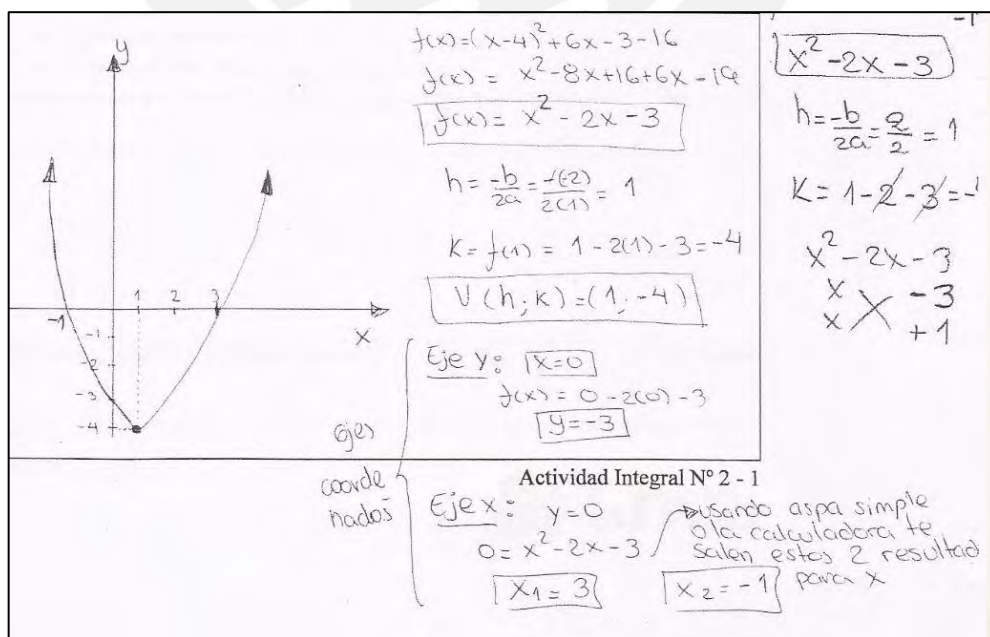 y
1 2 3
-1
x
-1
-2
-3
-4
f(x)=(x-4)²+6x-3-16
f(x) = x²-8x+16+6x-19
f(x)= x²-2x-3
h = -b/2a = -(-2)/2(1) = 1
K= f(1) = 1-2(1)-3=-4
V(h;k)=(1;-4)
ejes
coorde
nados
Eje y: x=0
f(x) = 0-2(0)-3
y=-3
Actividad Integral Nº 2 - 1
Eje x: y=0
0= x²-2x-3
usando aspa simple
o la calculadora te
salen estos 2 resultad
para x
x₁ = 3
x₂ = -1
-1
x²-2x-3
h = -b/2a = 2/2 = 1
K= 1-2-3=-
x²-2x-3
x -3
x +1